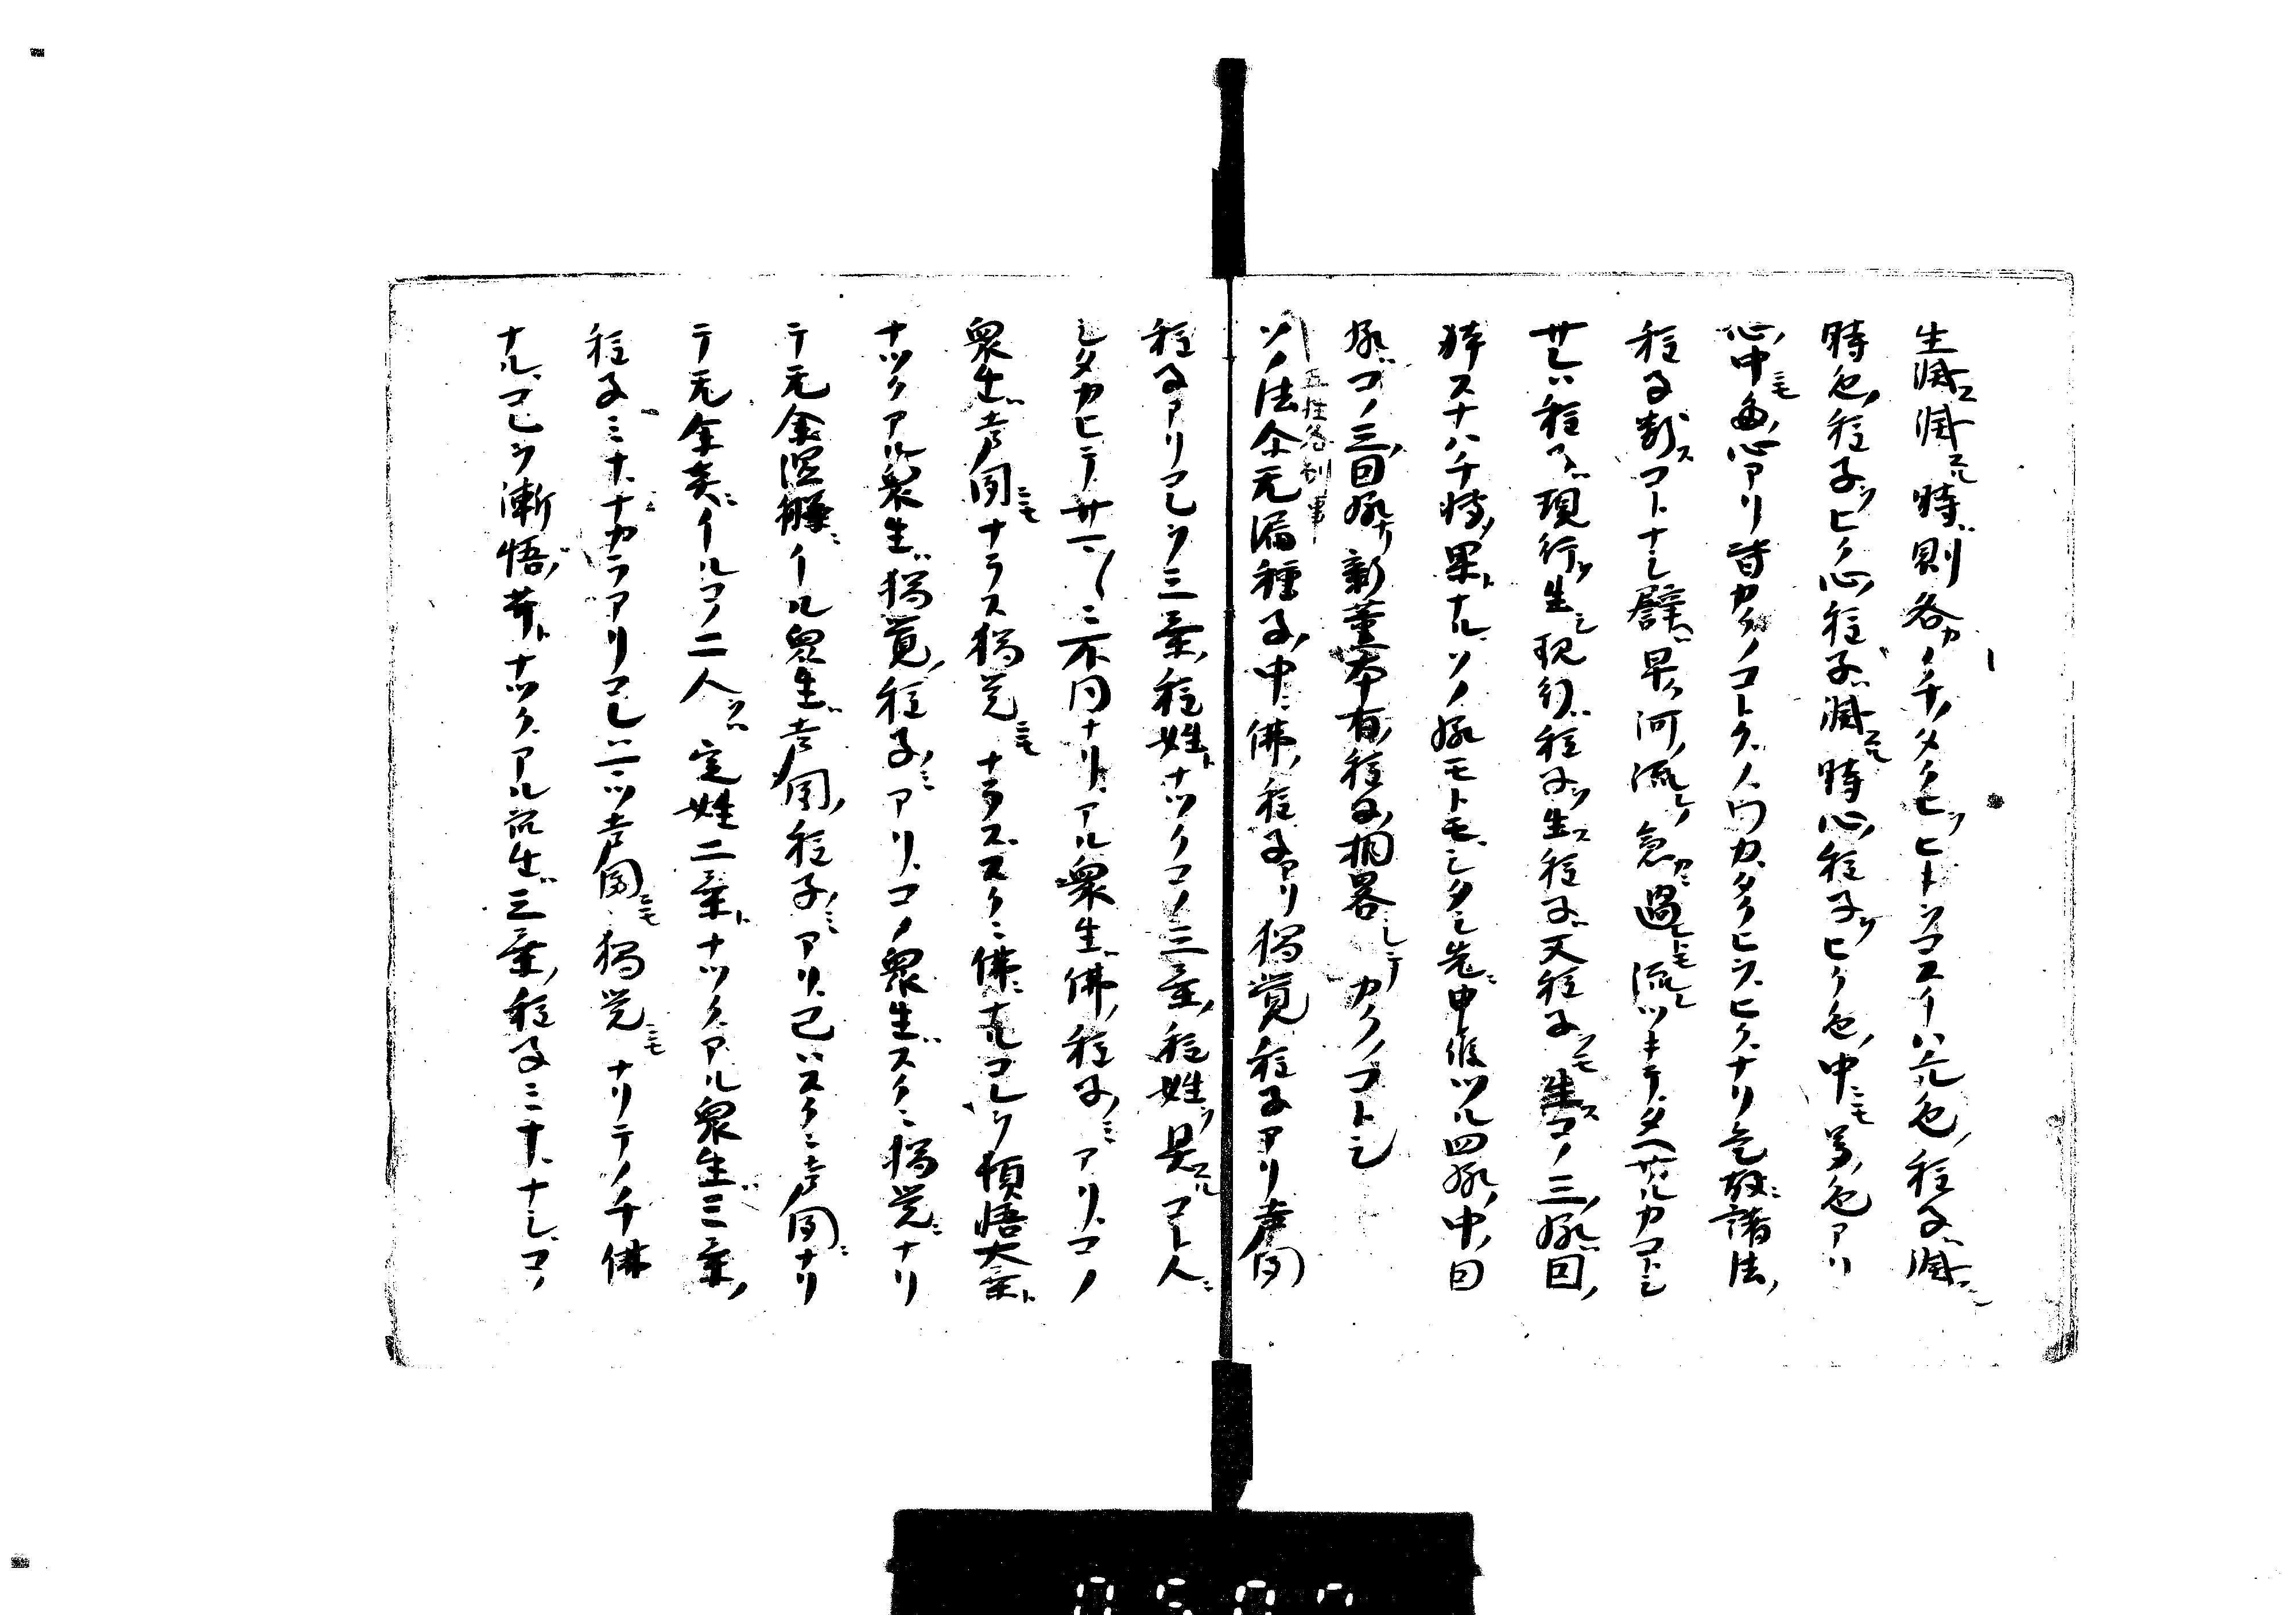 生滅ス滅スル時ハ則各カノチノタクヒヲヒトシコスイハ元色ノ種子ハ滅スル
時色ノ種子ヲヒク心ノ種子ハ滅スル時心ノ種子ヲヒク色ノ中ニモ多ノ色アリ
心ノ中ニモ多ノ心アリ皆カクノコトクノワカタクヒヲヒクナリ是故ニ諸法ノ
種子断スコトナシ譬ハ早ク河ノ流レノ急カニ過レトモ流レツキテタヘサルカコトシ
サレハ種子ハ現行ヲ生シ現行ハ種子ヲ生ス種子ハ又種子ヲモ生スコノ三ノ縁ハ因ノ
体スナハチ将ノ果トナルソノ縁モトモシタシ先ニ申候ツル四縁ノ中ノ因
縁ハコノ三ノ因縁ナリ新薫本有ノ種子ノ相畧シテカクノコトシ
五性各別事
ソノ法尒元漏種子ノ中ニ佛ノ種子アリ獨覚種子アリ声聞
種子アリコレヲ三乗ノ種姓トナツクコノ三乗ノ種姓ヲ具スルコト人ニ
シタカヒテサマ〱ニ不同ナリアル衆生ハ佛ノ種子ノミアリコノ
衆生ハ声聞ニモナラス獨覚ニモナラススクニ佛ニナルコレヲ頓悟大乗ト
ナツクアル衆生ハ獨覚ノ種子ノミアリコノ衆生ハスクニ獨覚ニナリ
テ元余涅槃ニイルアル衆生ハ声聞ノ種子ノミアリ己ハスクニ声聞ニナリ
テ元余矣ニイルコノ二人ヲハ定姓二乗トナツクアル衆生ハ三乗ノ
種子ミナナカラアリコレハ二ツ声聞ニモ獨覚ニモナリテノチ佛
ナルコレヲ漸悟ノ菩トナツクアル衆生ハ三乗ノ種子ミナナシコノ